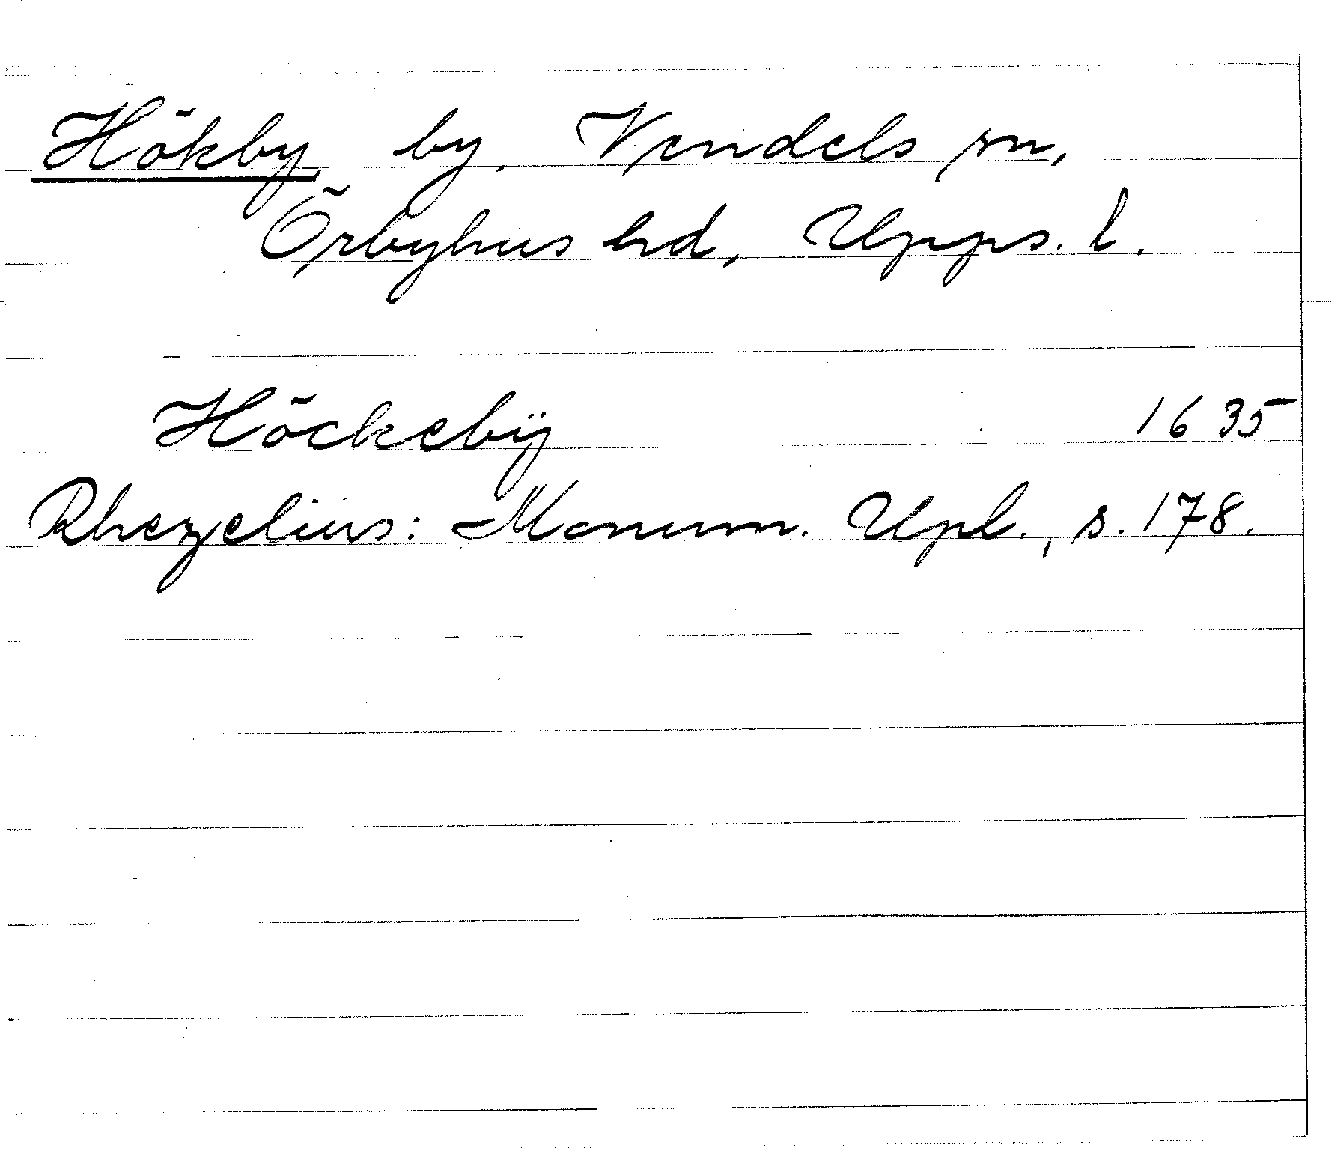 Hökby, by, Vendels sn,
Örbyhus hd, Upps. l.
Höckebÿ 1635
Rhezelius: Monum. Upl., s. 178.